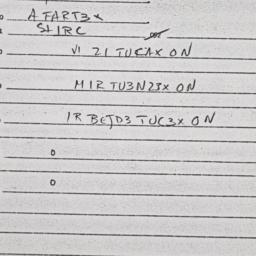 A FART3X
SHIRC
VI 21 TUCAX ON
MIR TU3N23X ON
IR BETD3 TUC3X ON